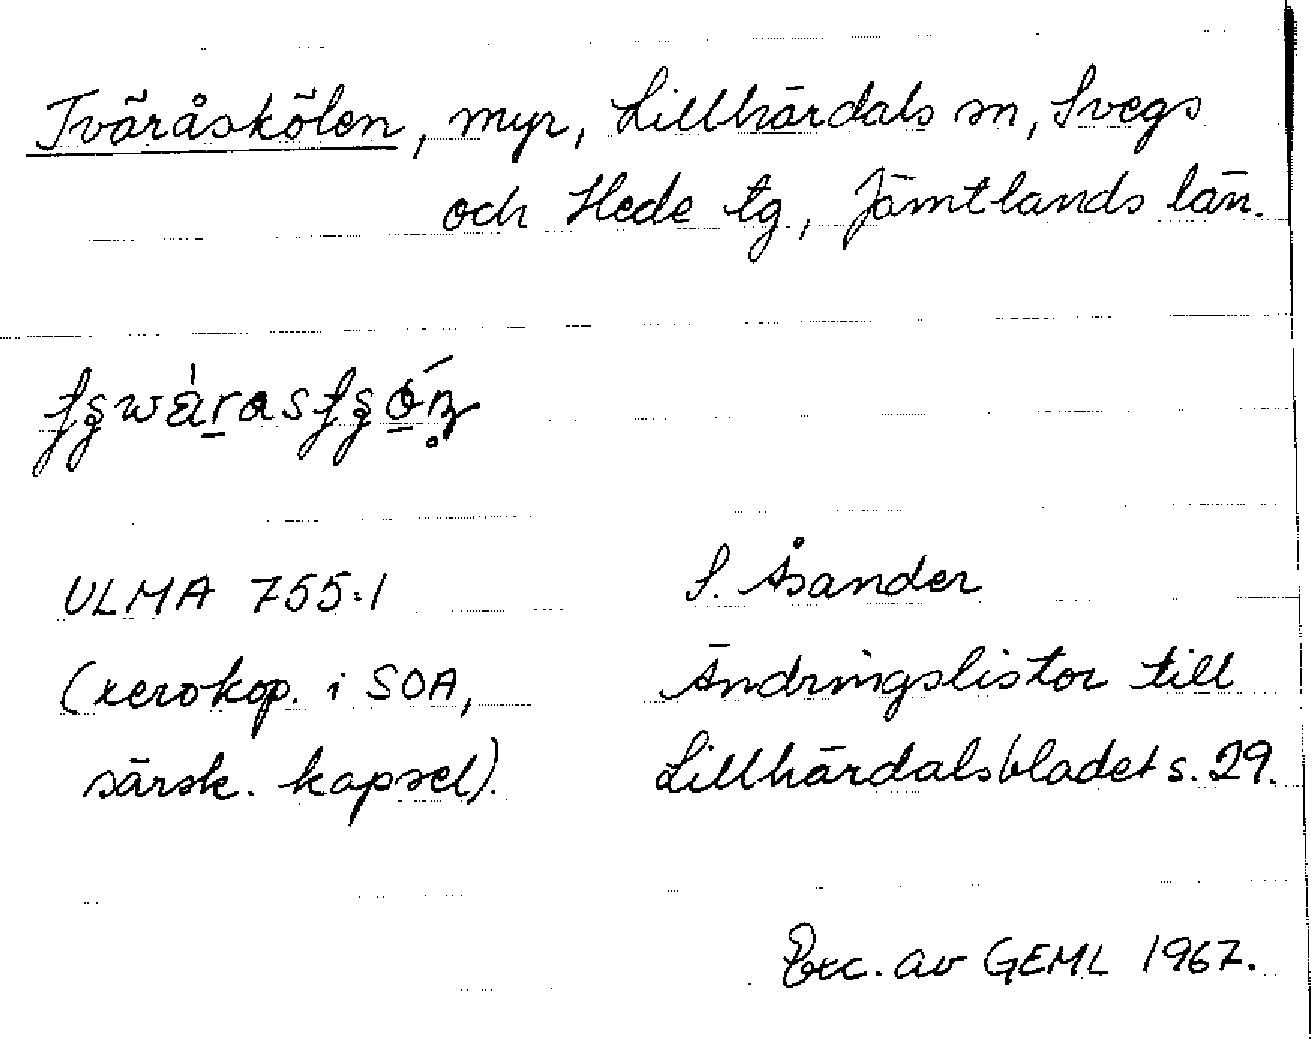 Tväråskölen, myr, Lillhärdals sn, Svegs
och Hede tg., Jämtlands län.
ULMA 755:1
(xerokop. i SOA,
särsk. kapsel).
S. Åsander
Ändringslistor till
Lillhärdalsbladet s. 29.
Exc. av GEML 1967.